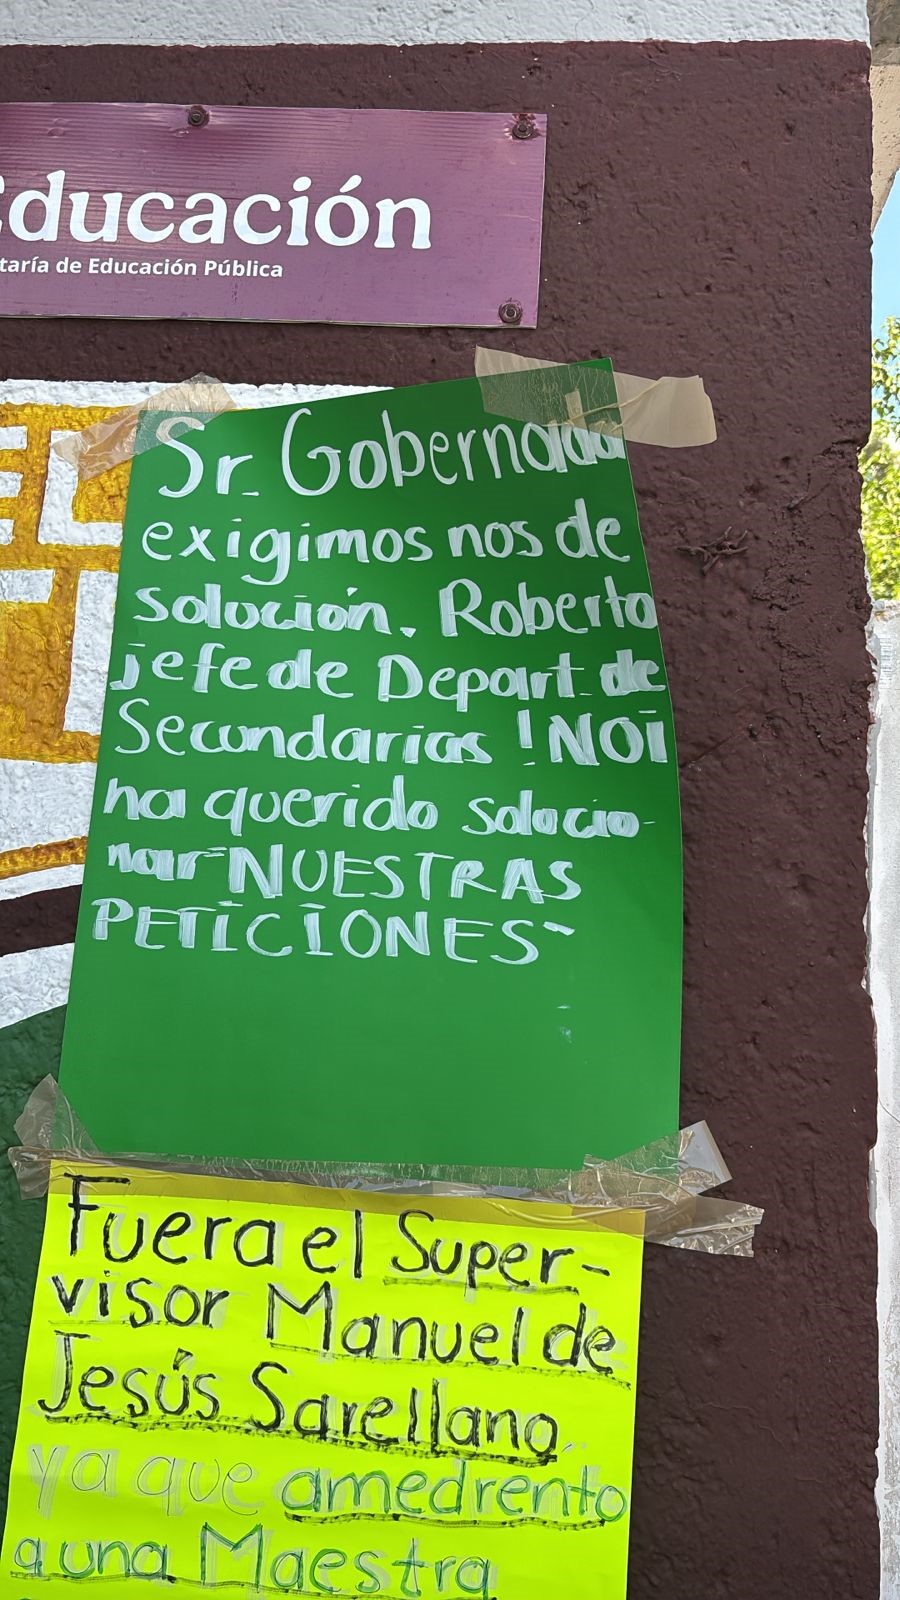 Educación
taría de Educación Pública
Sr. Gobernador
exigimos nos de
solución. Roberto
jefe de Depart. de
Secundarias ! NO¡
ha querido solucio-
nar NUESTRAS
PETICIONES
Fuera el Super-
visor Manuel de
Jesús Sarellano
ya que amedrento
a una Maestra